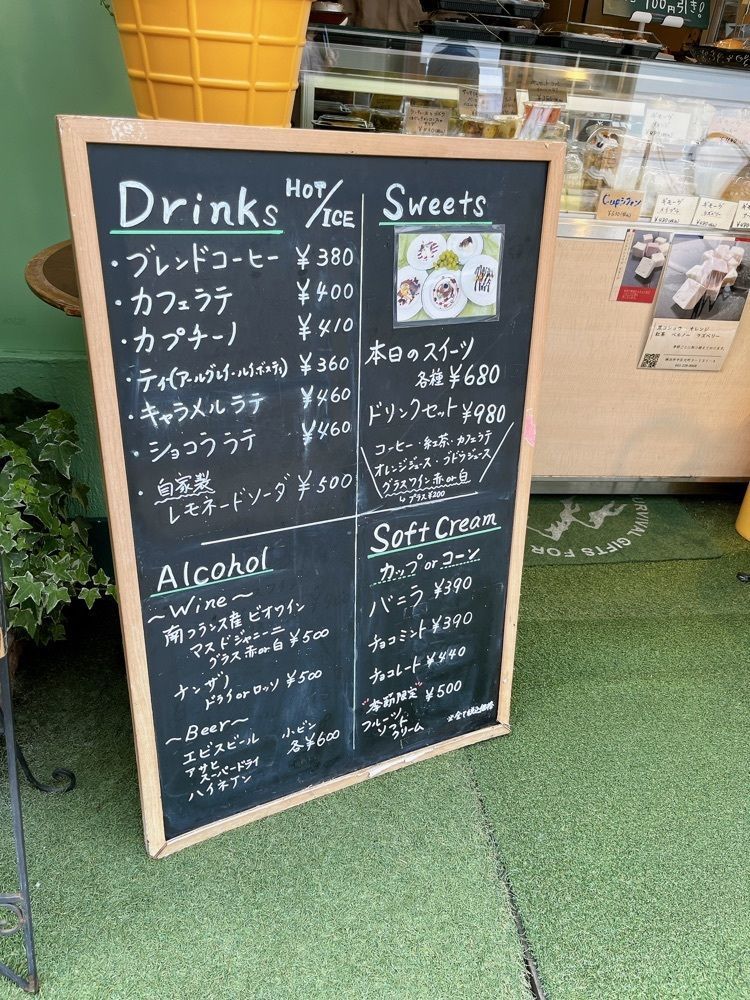 Drinks HOT/ICE
・ブレンドコーヒー ¥380
・カフェラテ ¥400
・カプチーノ ¥410
・ティ(アールグレイ・ルイボスティ) ¥360
・キャラメルラテ ¥460
・ショコララテ ¥460
・自家製
レモネードソーダ ¥500
Sweets
本日のスイーツ
各種 ¥680
ドリンクセット ¥980
コーヒー・紅茶・カフェラテ
オレンジジュース・ブドウジュース
グラスワイン赤or白
プラス¥200
Alcohol
~Wine~
南フランス産 ビオワイン
マスドジャニーニ
グラス赤or白 ¥500
ナンザノ
ドライorロッソ ¥500
~Beer~
エビスビール
アサヒ
スーパードライ
ハイネケン
小ビン
各¥600
Soft Cream
カップorコーン
バニラ ¥390
チョコミント ¥390
チョコレート ¥440
"季節限定" ¥500
フルーツ
ソフト
クリーム
※全て税込価格
100円引き!
Cupシフォン
URVIVAL GIFTS FOR